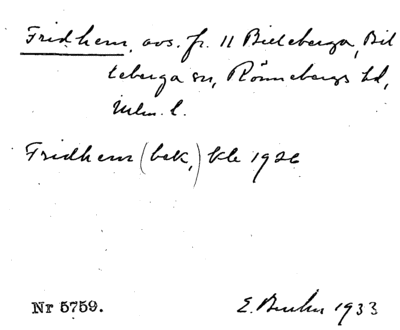 Fridhem, avs. fr. 11 Billeberga, Bil
leberga sn, Rönnebergs hd,
Mlm. l.
Fridhem (bek,) kb 1926
Nr 5759.
E. 1933